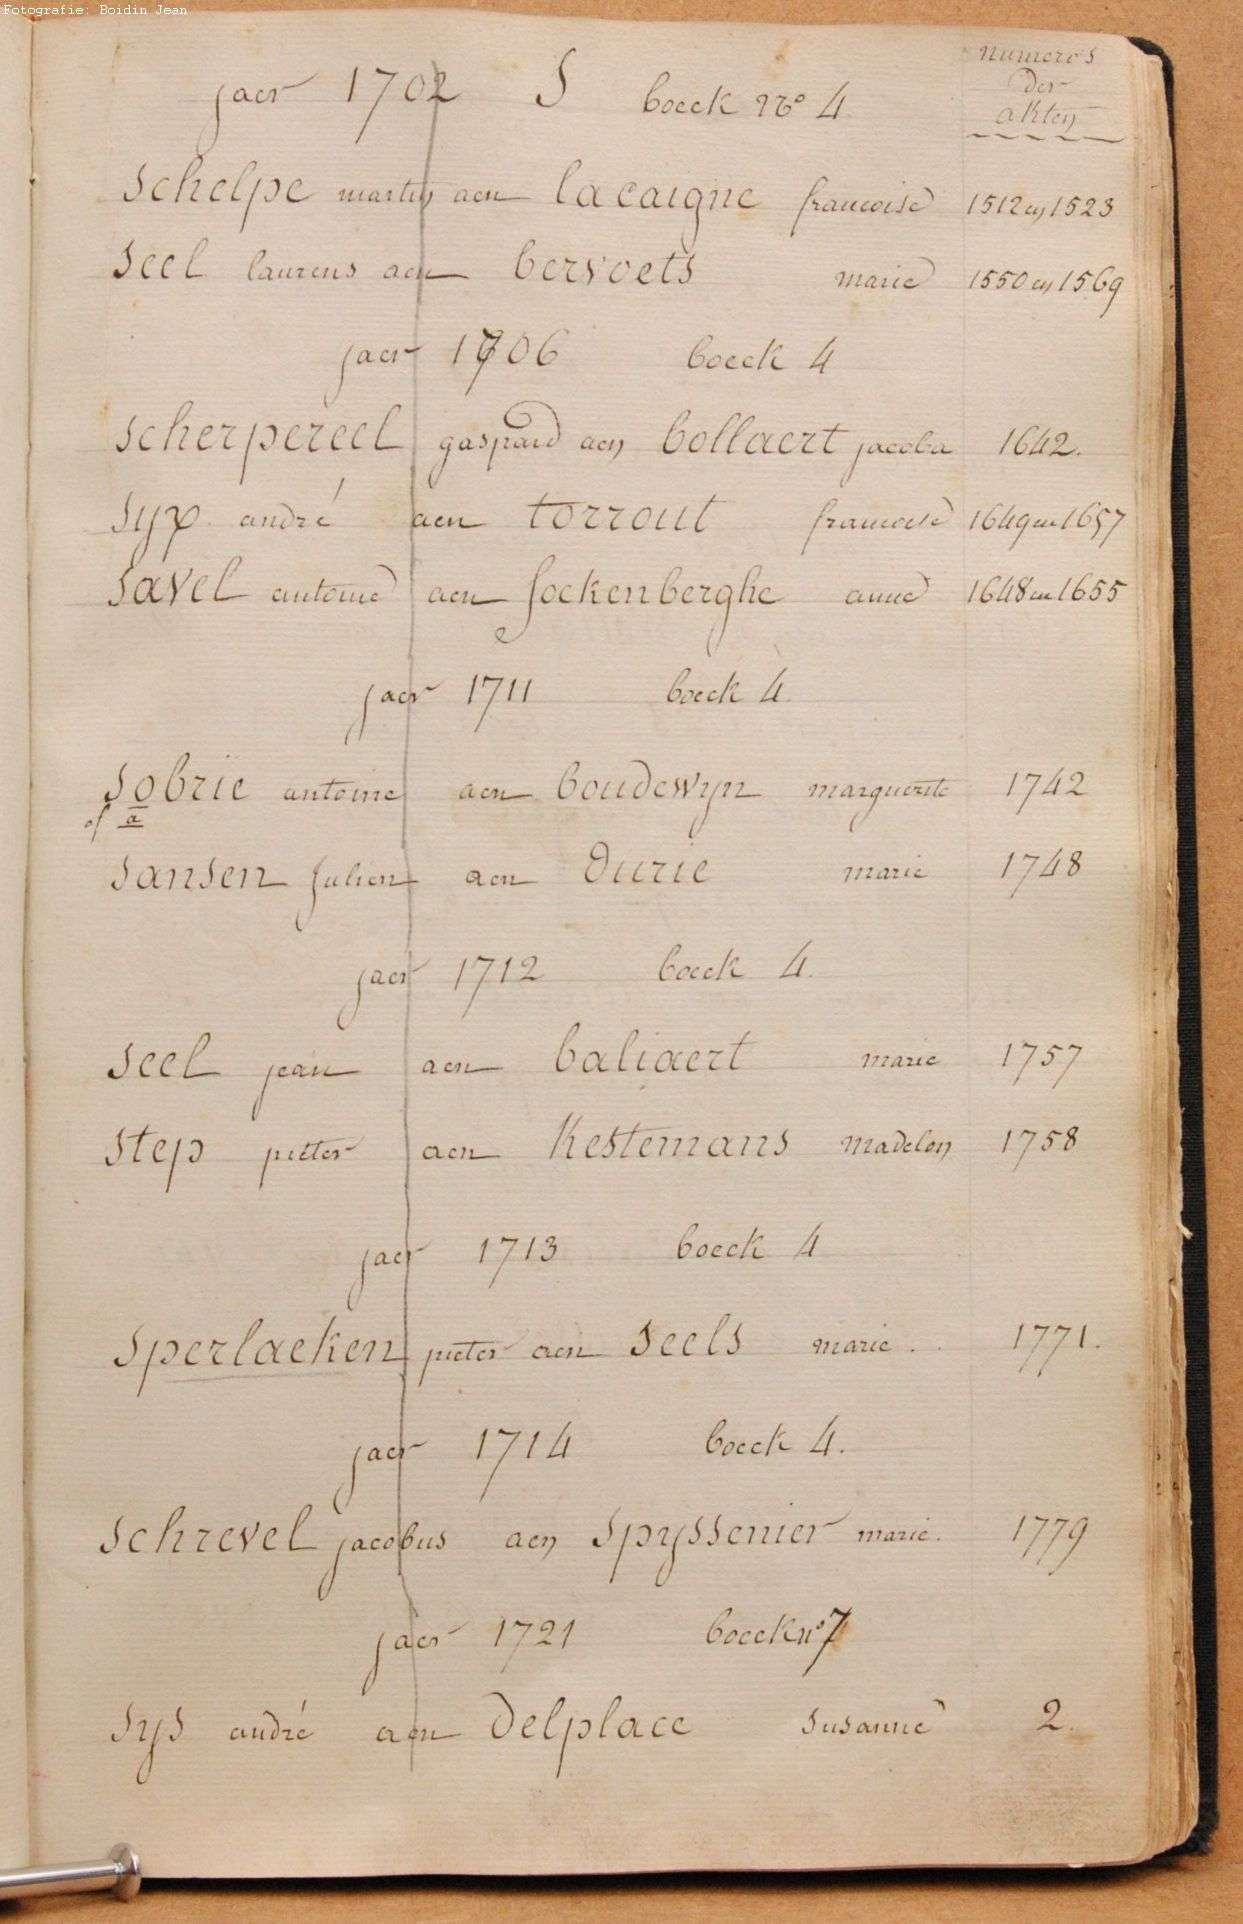 Fotografie: Boidin Jean
numeros
der
akten
jaer 1702 S boeck no 4
schelpe martin aen lacaigne francoise 1512 en 1523
seel laurens aen bervoets marie 1550 en 1569
jaer 1706 boeck 4
scherpereel gaspard aen bollaert jacoba 1642.
syx andré aen torrout francoise 1649 en 1657
savel antoine aen fockenberghe anne 1648 en 1655
jaer 1711 boeck 4
sobrie antoine aen boudewyn marguerite 1742
of a
sansen Julien aen Durie marie 1748
jaer 1712 boeck 4.
seel jean aen baliaert marie 1757
step pieter aen Kestemans madelen 1758
jaer 1713 boeck 4
sperlaeken pieter aen seels marie. 1771.
jaer 1714 boeck 4.
schrevel jacobus aen spyssenier marie. 1779
jaer 1721 boeck no 7
sys andré aen Delplace susanne 2.